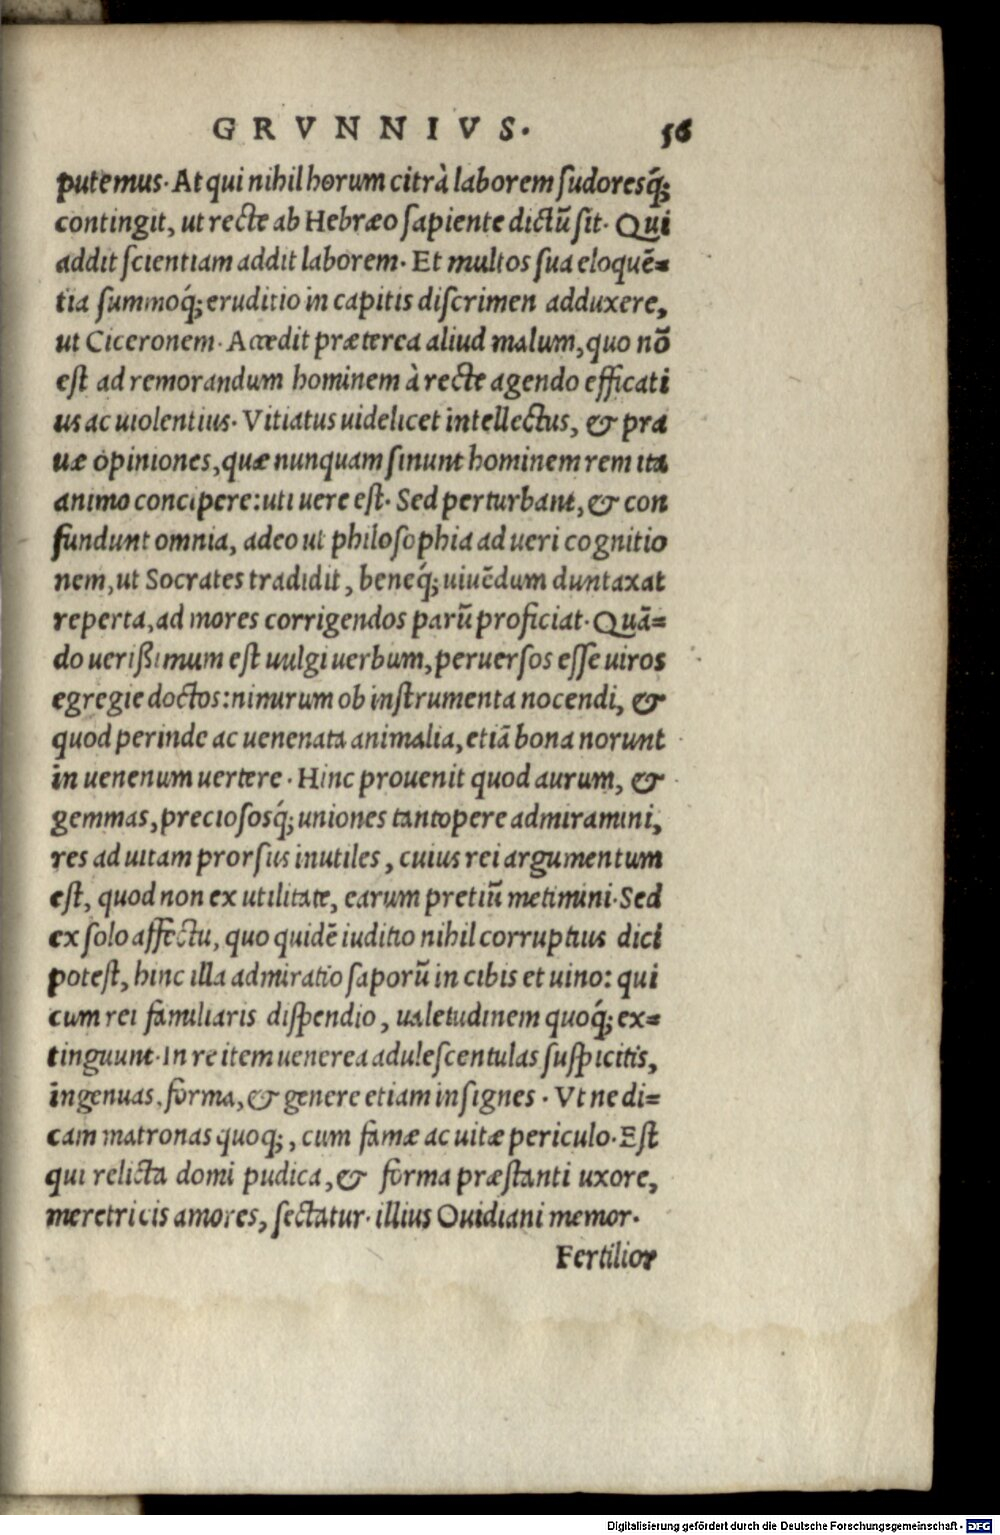 GRVNNIVS. 56
putemus. At qui nihil horum citrà laborem sudoresq́;
contingit, ut recte ab Hebræo sapiente dictũ sit. Qui
addit scientiam addit laborem. Et multos sua eloquẽ=
tia summoq́; eruditio in capitis discrimen adduxere,
ut Ciceronem. Accedit præterea aliud malum, quo nõ
est ad remorandum hominem à recte agendo efficati
us ac uiolentius. Vitiatus uidelicet intellectus, & pra
uæ opiniones, quæ nunquam sinunt hominem rem ita
animo concipere: uti uere est. Sed perturbant, & con
fundunt omnia, adeo ut philosophia ad ueri cognitio
nem, ut Socrates tradidit, beneq́; uiuẽdum duntaxat
reperta, ad mores corrigendos parũ proficiat. Quã=
do uerißimum est uulgi uerbum, peruersos esse uiros
egregie doctos: nimirum ob instrumenta nocendi, &
quod perinde ac uenenata animalia, etiã bona norunt
in uenenum uertere. Hinc prouenit quod aurum, &
gemmas, preciososq́; uniones tantopere admiramini,
res ad uitam prorsus inutiles, cuius rei argumentum
est, quod non ex utilitate, earum pretiũ metimini. Sed
ex solo affectu, quo quidẽ iuditio nihil corruptius dici
potest, hinc illa admiratio saporũ in cibis et uino: qui
cum rei familiaris dispendio, ualetudinem quoq́; ex=
tinguunt. In re item uenerea adulescentulas suspicitis,
ingenuas, forma, & genere etiam insignes. Vt ne di=
cam matronas quoq;, cum famæ ac uitæ periculo. Est
qui relicta domi pudica, & forma præstanti uxore,
meretricis amores, sectatur. illius Ouidiani memor.
Fertilior
Digitalisierung gefördert durch die Deutsche Forschungsgemeinschaft - DFG